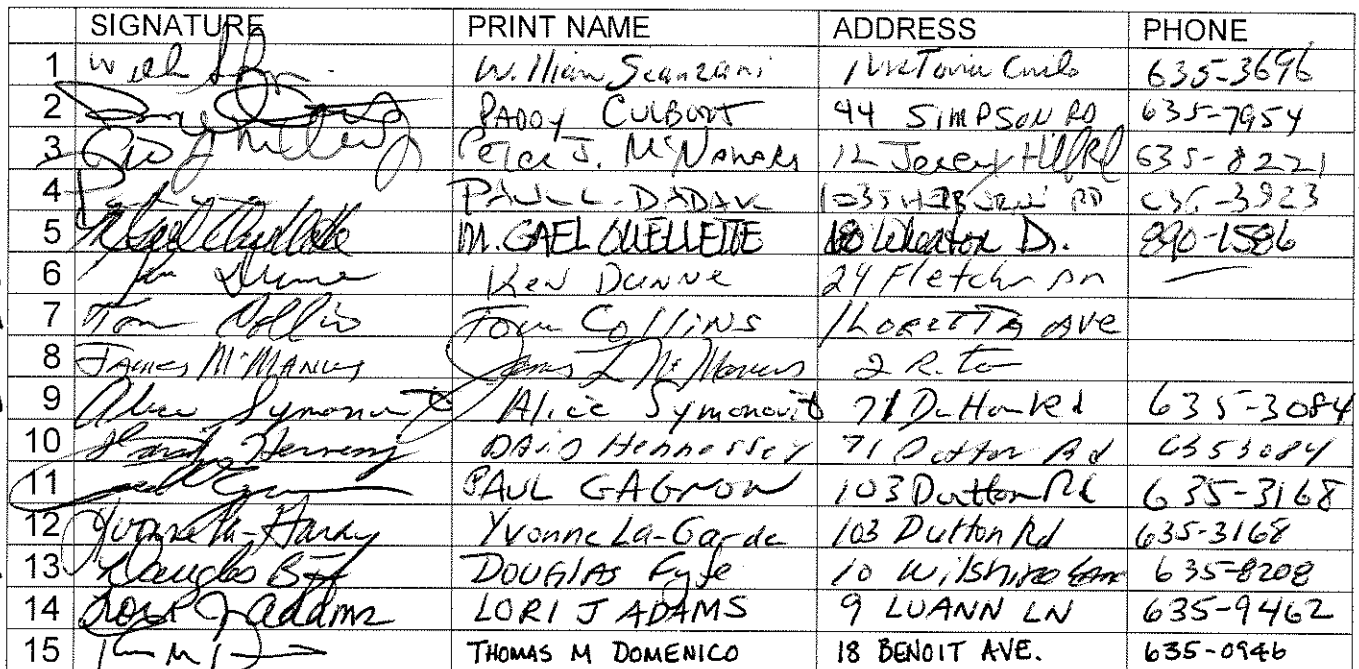 SIGNATURE PRINT NAME ADDRESS PHONE
1 William Scanzani 1 Victoria Circle 635-3696
2 PADDY CULBERT 44 SIMPSON RD 635-7954
3 Peter J. McNamara 12 Jeremy Hill Rd 635-8221
4 PAUL L. DADAK 635-3923
5 M. GAEL OUELLETTE M. GAEL OUELLETTE Wheaton D. 890-1586
6 Ken Dunne Ken Dunne 24 Fletcher Dr —
7 Tom Collins Tom Collins 1 LORETTA AVE
8 James McManus James L McManus 2 Rita
9 Alice Symonovit Alice Symonovit 71 Dutton Rd 635-3084
10 David Hennessey DAviD Hennessey 71 Dutton Rd 6353084
11 PAUL GAGNON 103 Dutton Rd 635-3168
12 Yvonne La-Garde 103 Dutton Rd 635-3168
13 Douglas DOUGlAS Fyfe 10 Wilshire 635-8208
14 Lori J Adams LORI J ADAMS 9 LUANN LN 635-9462
15 THOMAS M DOMENICO 18 BENOIT AVE. 635-0946